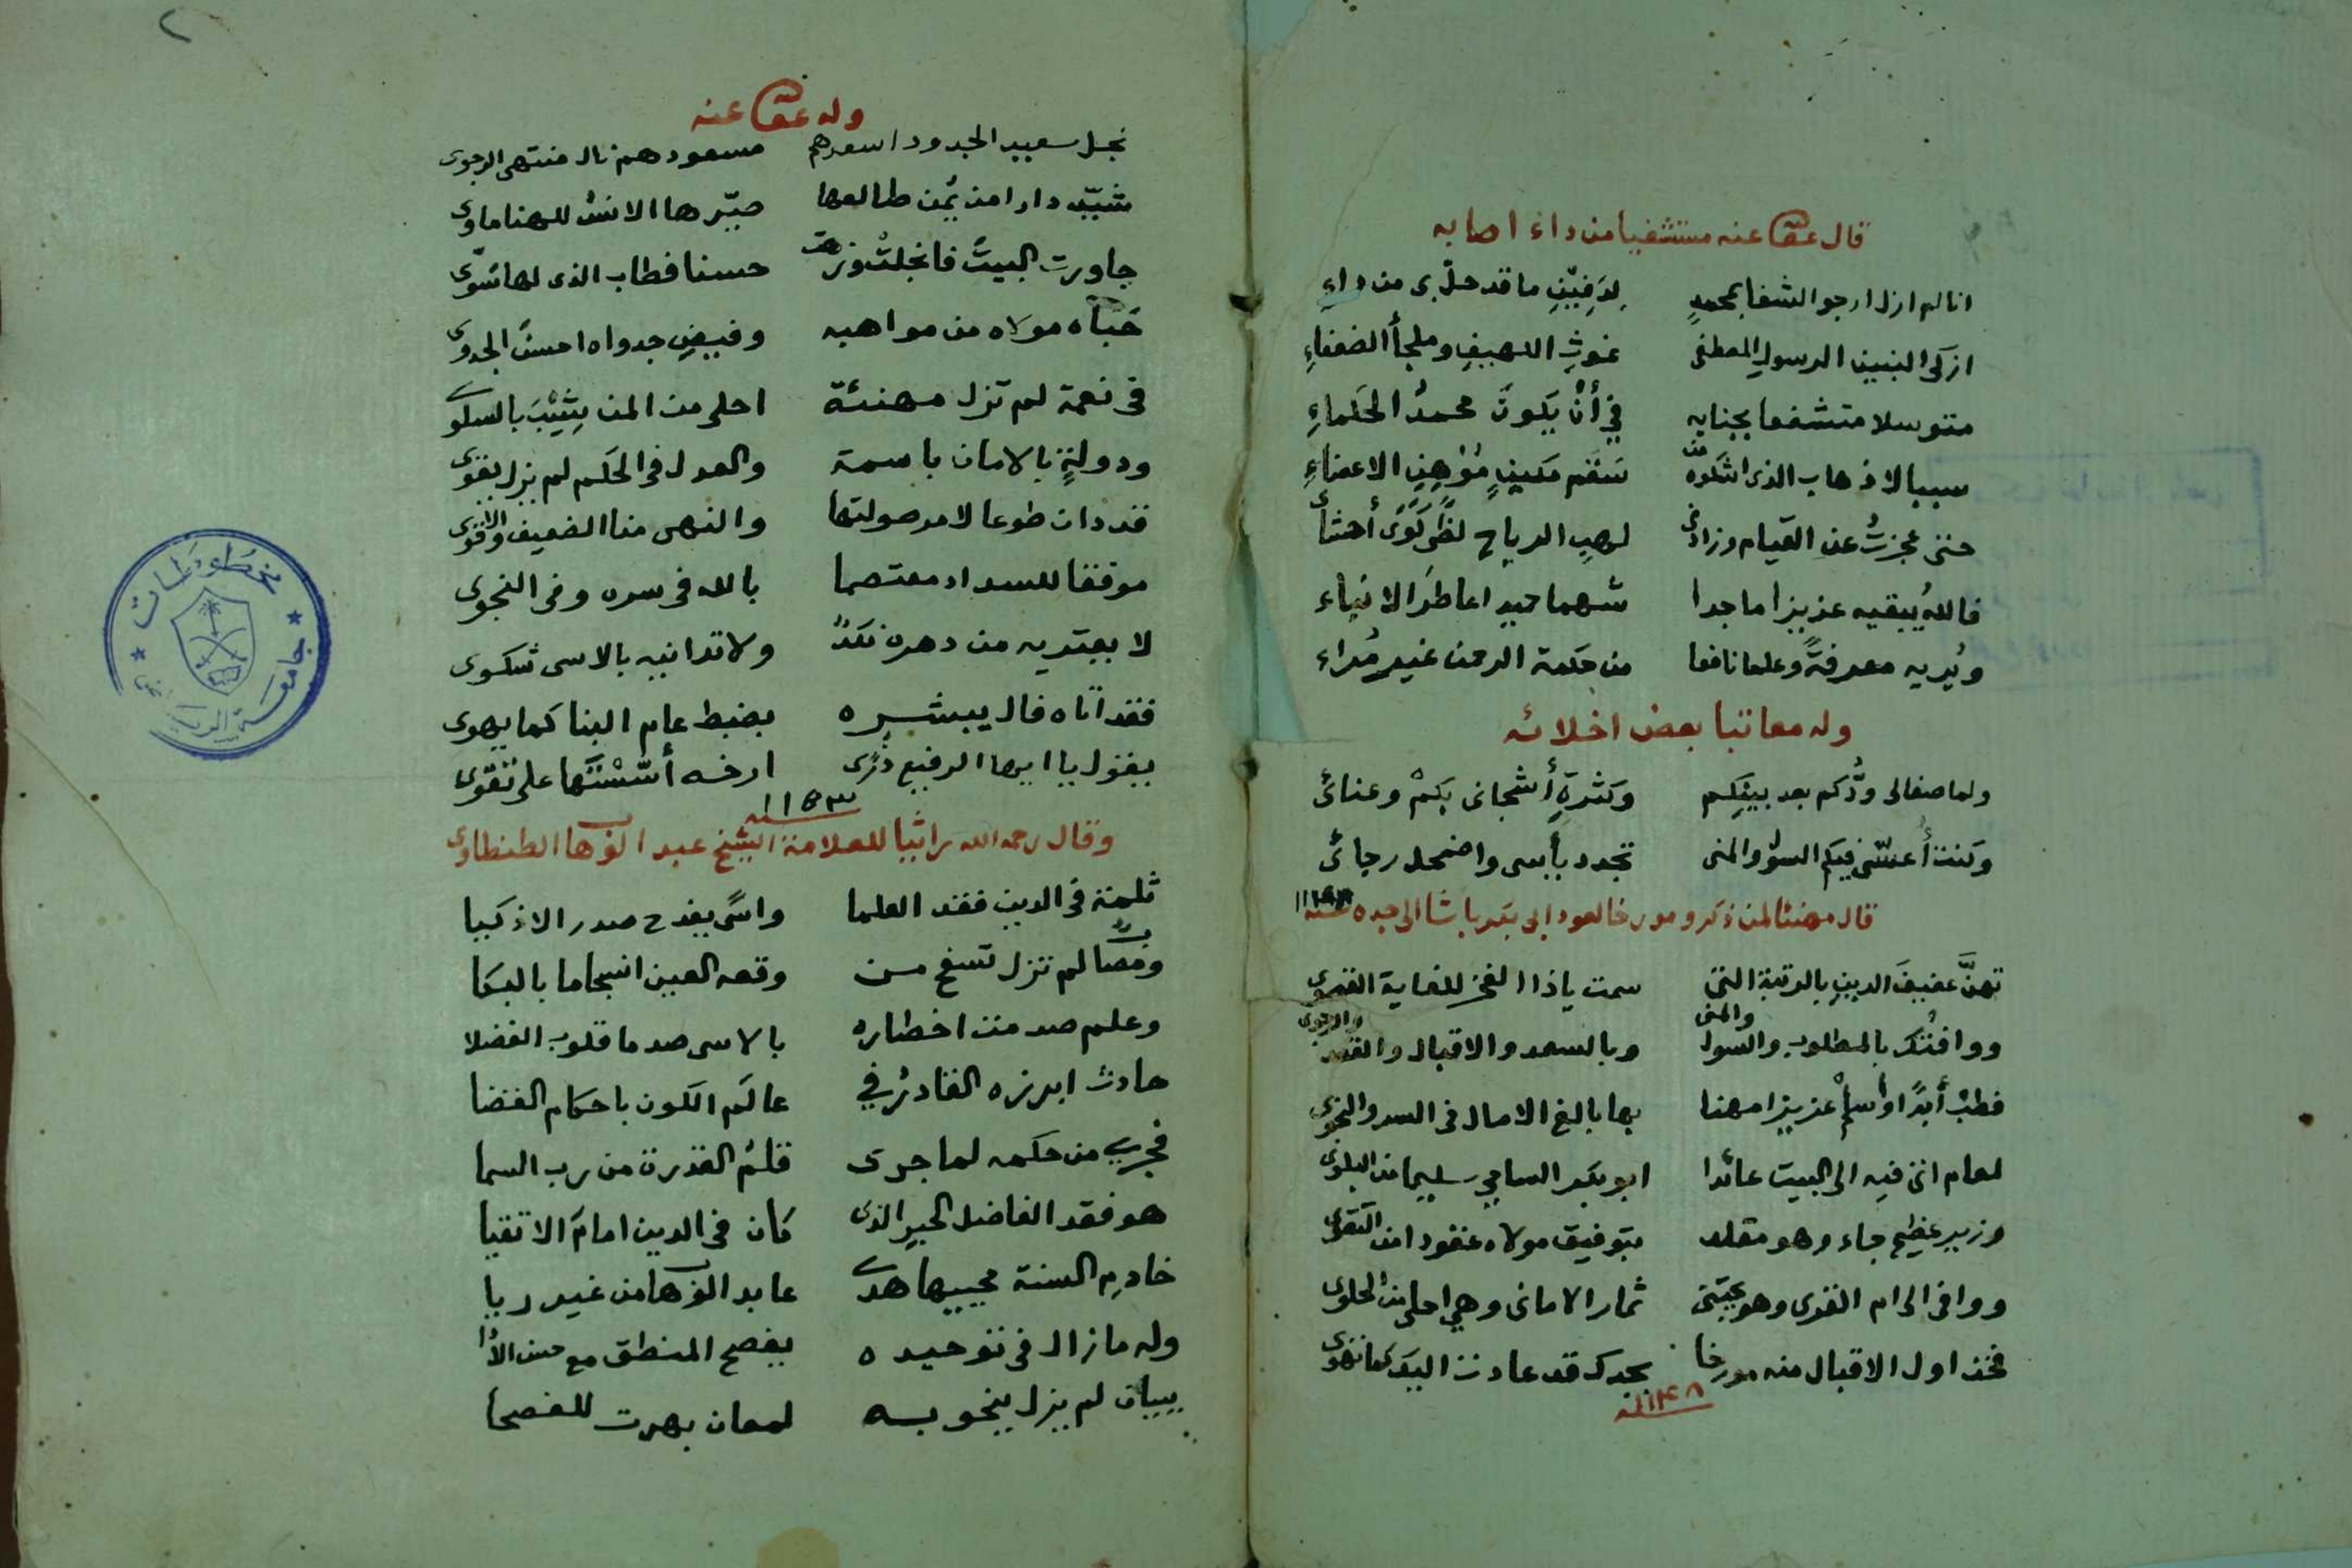 قال عفا الله عنه مستشفيا من داء اصابه
انا لم ازل ارجو الشفا بمحمدٍ لِدَفِيْنِ ما قد حلّ بى من داءِ
ازكى النبيين الرسول المصطفى غوثِ اللهيفِ وملجأ الضعفاءِ
متوسلا متشفعا بجنابه في أنْ يكونَ محمدُ الحكماءِ
سببا لاذهاب الذى اشكوه من سَقَم مكينٍ مُوْهِنِ الاعضاءِ
حتى عجزتُ عن القيام وزادنى لهب الرياح لظًى كَوَى أحشائى
فاللهُ يبقيه عزيزا ماجدا شهما حميدا عاطرَ الانباء
ويُريه معرفةً وعلما نافعا من حكمة الرحمن غير مُراء
وله معاتبا بعض اخلائه
ولما صفا لى ودُّكم بعد بينِكم وكثرةِ أشجانى بكمْ وعنائى
وكنت أُعشّى فيكم السؤل والمنى تجدد يأسى واضمحل رجائى
قال مهنئا لمن ذكر ومورخا لعود ابى بكر باشا الى جده سنة ١١٤٨
تهنَّ عفيفَ الدينِ بالرتبة التى سمت ياذا الفخر للغاية القصوى
ووافتك بالمطلوب والسول والمنى وبالسعد والاقبال والقصد والرجوى
فطبْ أبدًا وأسلمْ عزيزا مهنا بها بالغ الامال فى السر والنجوى
لعام اتى فيه الى البيت عائدا ابو بكر السامى سليما من البلوى
وزير عظيم جاء وهو مقلد بتوفيق مولاه عقودا من التقوى
ووافى الى ام القرى وهو يجتنى ثمار الامانى وهي احلى من الحلوى
فخذ اول الاقبال منه مورخا بجدك قد عادت اليك كما تهوى
سنة ١١٤٨
٢
وله عفا الله عنه
نجل سعيد الجدود اسعدهم مسعودهم نال منتهى الرجوى
شيّد دارا من يُمن طالعها صيّرها الانسُ للهنا ماوى
جاورت البيتَ فانجلتْ وزهت حسنا فطاب الذى لها سَوّى
حَبَاه مولاه من مواهبه وفيضِ جدواه احسنَ الجدوى
فى نعمة لم تزل مهنئة احلى من المن شِيْبَ بالسلوى
ودولةٍ بالامان باسمة والعدل فى الحكم لم يزل يقوى
قد دان طوعا لامر صولتها والنهى منا الضعيف والاقوى
موفقا للسداد معتصما بالله فى سره وفى النجوى
لا يعتريه من دهره نكدٌ ولا تدانيه بالاسى شكوى
فقد اتاه فال يبشره بضبط عام البنا كما يهوى
بقول يا ايها الرفيع ذُرى ارخه أسّسْتَها على تقوى
سنة ١١٥٣
وقال رحمه الله راثيا للعلامة الشيخ عبد الوهاب الطنطاوى
ثلمة فى الدين فقد العلما واسًى يقدح صدر الاذكيا
ومصاب لم تزل تسفح من وقعه العين انسجاما بالبكا
وعلم صدمت اخطاره بالاسى صدما قلوب الفضلا
حادث ابرزه القادرُ في عالَم الكون باحكام القضا
فجرى من حكمه لما جرى قلمُ القدرة من رب السما
هو فقد الفاضل الحبر الذى كان فى الدين امامَ الاتقيا
خادم السنة محييها هدى عابد الوهاب من غير ريا
وله ما زال فى توحيده يفصح المنطق مع حسن الادا
ببيان لم يزل ينحو به لمعان بهرت للفصحا
مخطوطات
جامعة الرياض